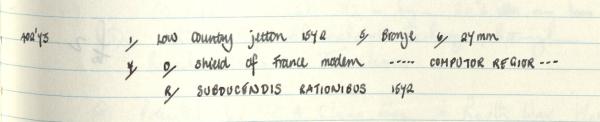 402'73 1/ Low Country jetton 1542 5/ Bronze 6/ 27mm
7/ O/ Shield of France modern ----- COMPUTOR REGIOR ---
R/ SUBDUCENDIS RATIONIBUS 1542